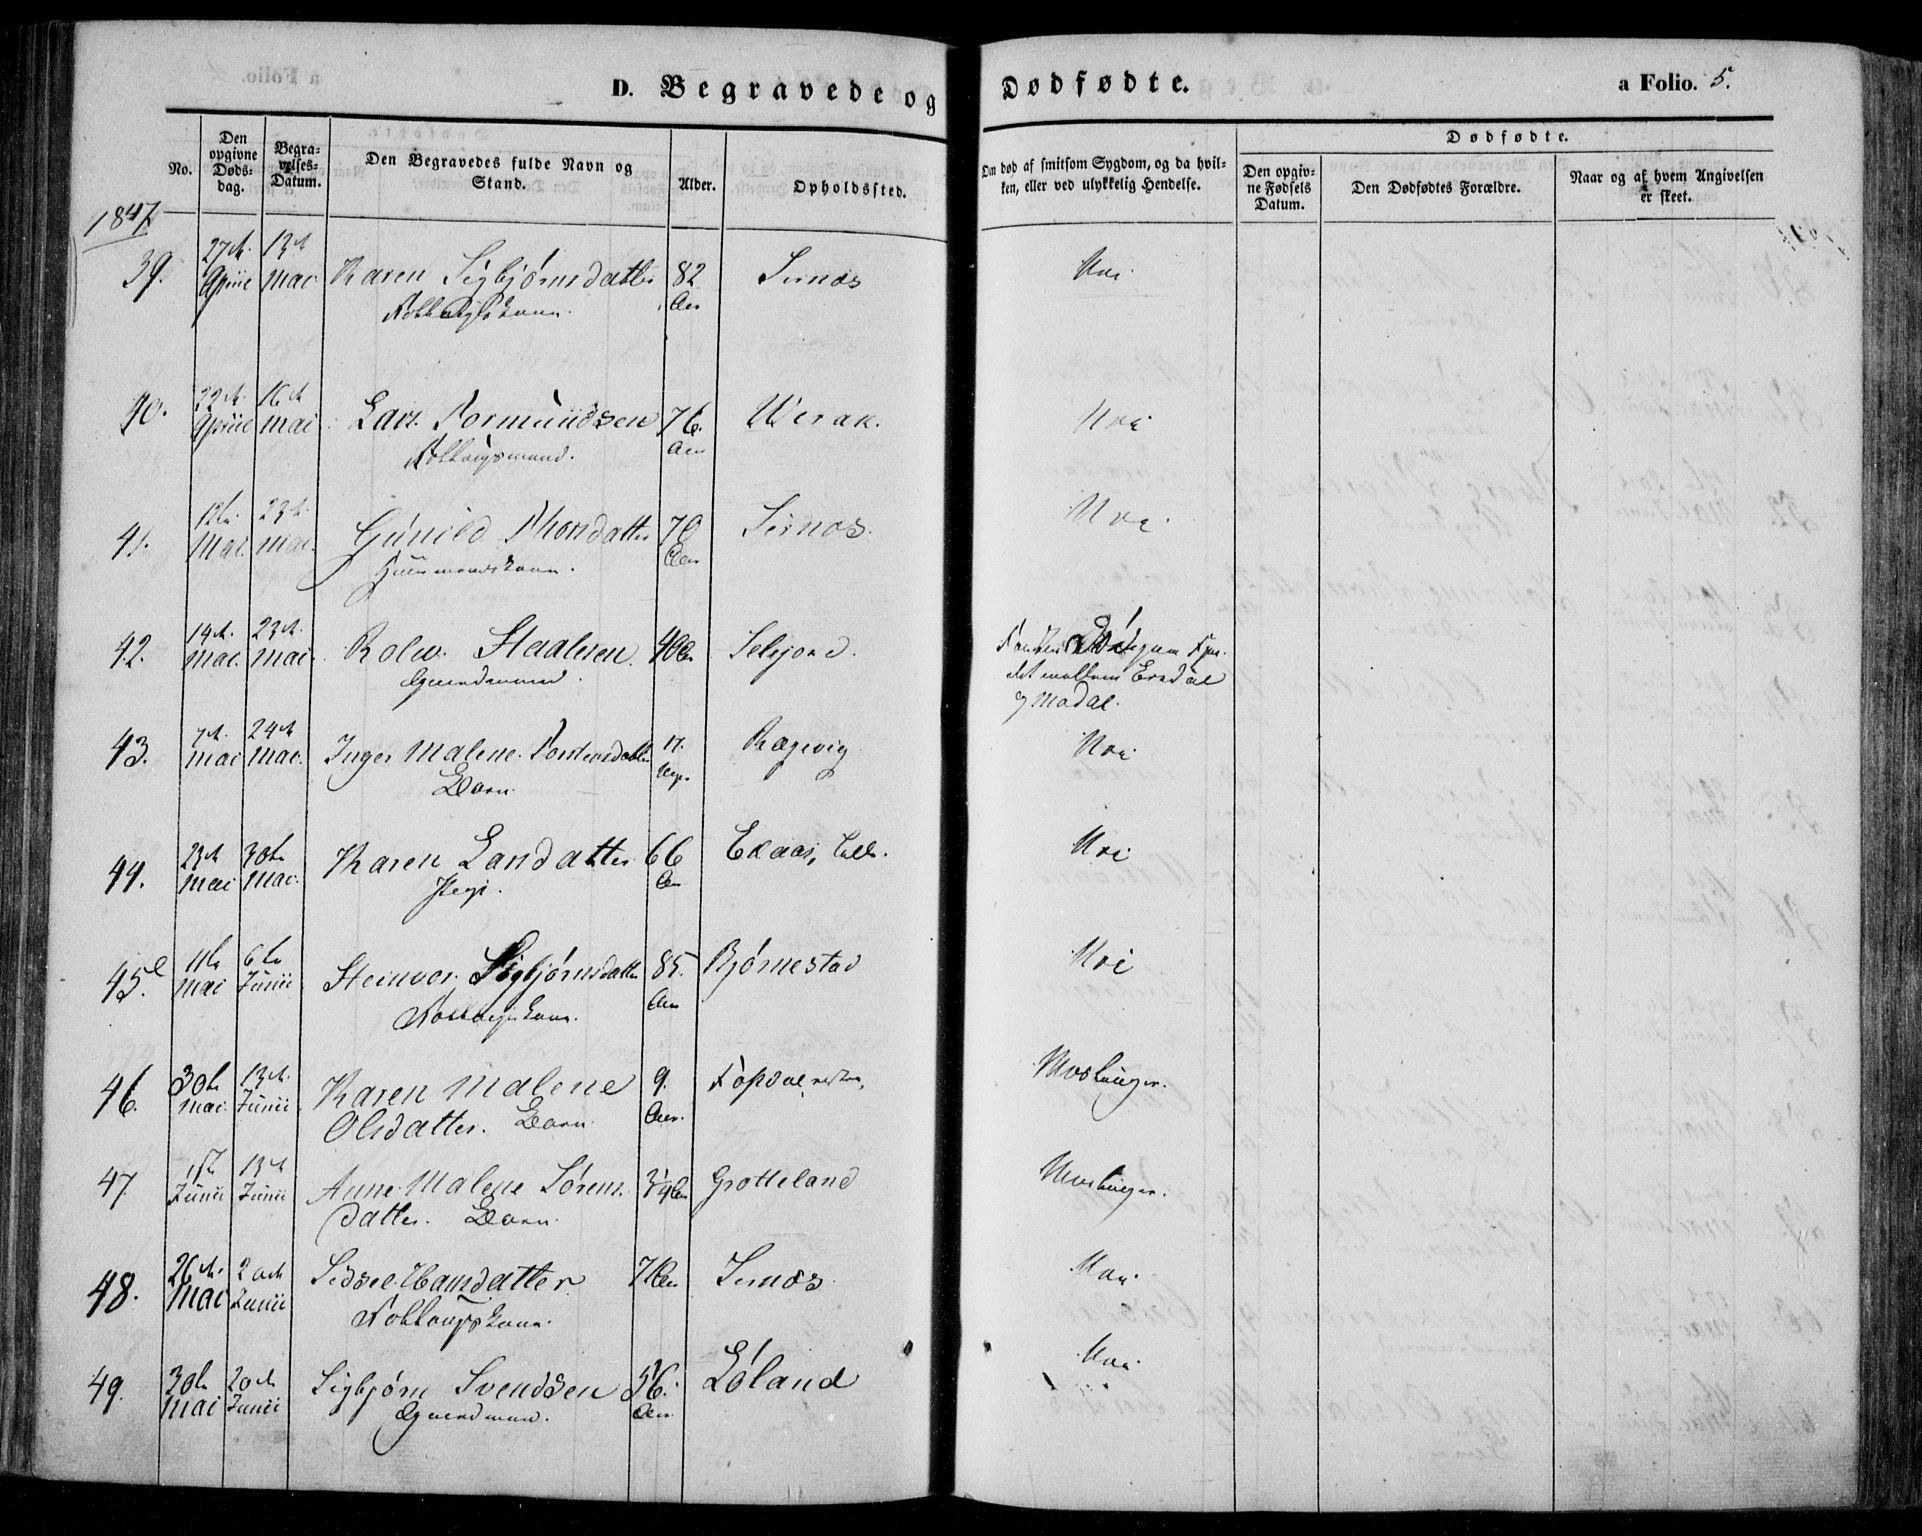 D. Begravede og Dødfødte.
a Folio. 5.
No.
Den opgivne Døds-dag.
Begra-velses-Datum.
Den Begravedes fulde Navn og Stand.
Alder.
Opholdssted.
Om død af smitsom Sygdom, og da hvil-
ken, eller ved ulykkelig Hendelse.
Dødfødte.
Den opgiv-ne Fødsels Datum.
Den Dødfødtes Forældre.
Naar og af hvem Angivelsen er skeet.
1847
39. 27de April 13de Mai Karen Sigbjørnsdatter 82 Aar Sirnæs Nei
40. 22de April 16de Mai Lars Tormundsen 76. Aar Nei
41. 12te Mai. 23de Mai. Gunild Thorsdatter 70 Aar Sirnæs. Nei
Huusmandskone.
42. 14de Mai. 23de Mai. Rolev. Staalesen. 40 Aar
Gaardmand.
det mellem Eredal
og Modal.
43. 7de Mai 24de Mai. Inger Malene Torstensdatter Rægevig Nei
Barn.
44. 23de Mai 30te Mai. Karen Larsdatter 66 Aar Nei
45. 11te Mai 6te Junii Steinvor Sigbjørnsdatter 85. Aar Bjørnestad Nei
46. 30te Mai. 13de Junii Karen Malene 9. Aar. Meslinger.
Olsdatter. Barn.
47. 1ste Junii 13de Junii Anne Malene Sørens- 3/4 Aar Grotteland Meslinger.
datter. Barn.
48. 26de Mai 20de Junii Sidsel Hansdatter Sirnæs Nei
49. 30te Mai 20de Junii Sigbjørn Svendsen 56. Aar. Løland Nei
Gaardmand.